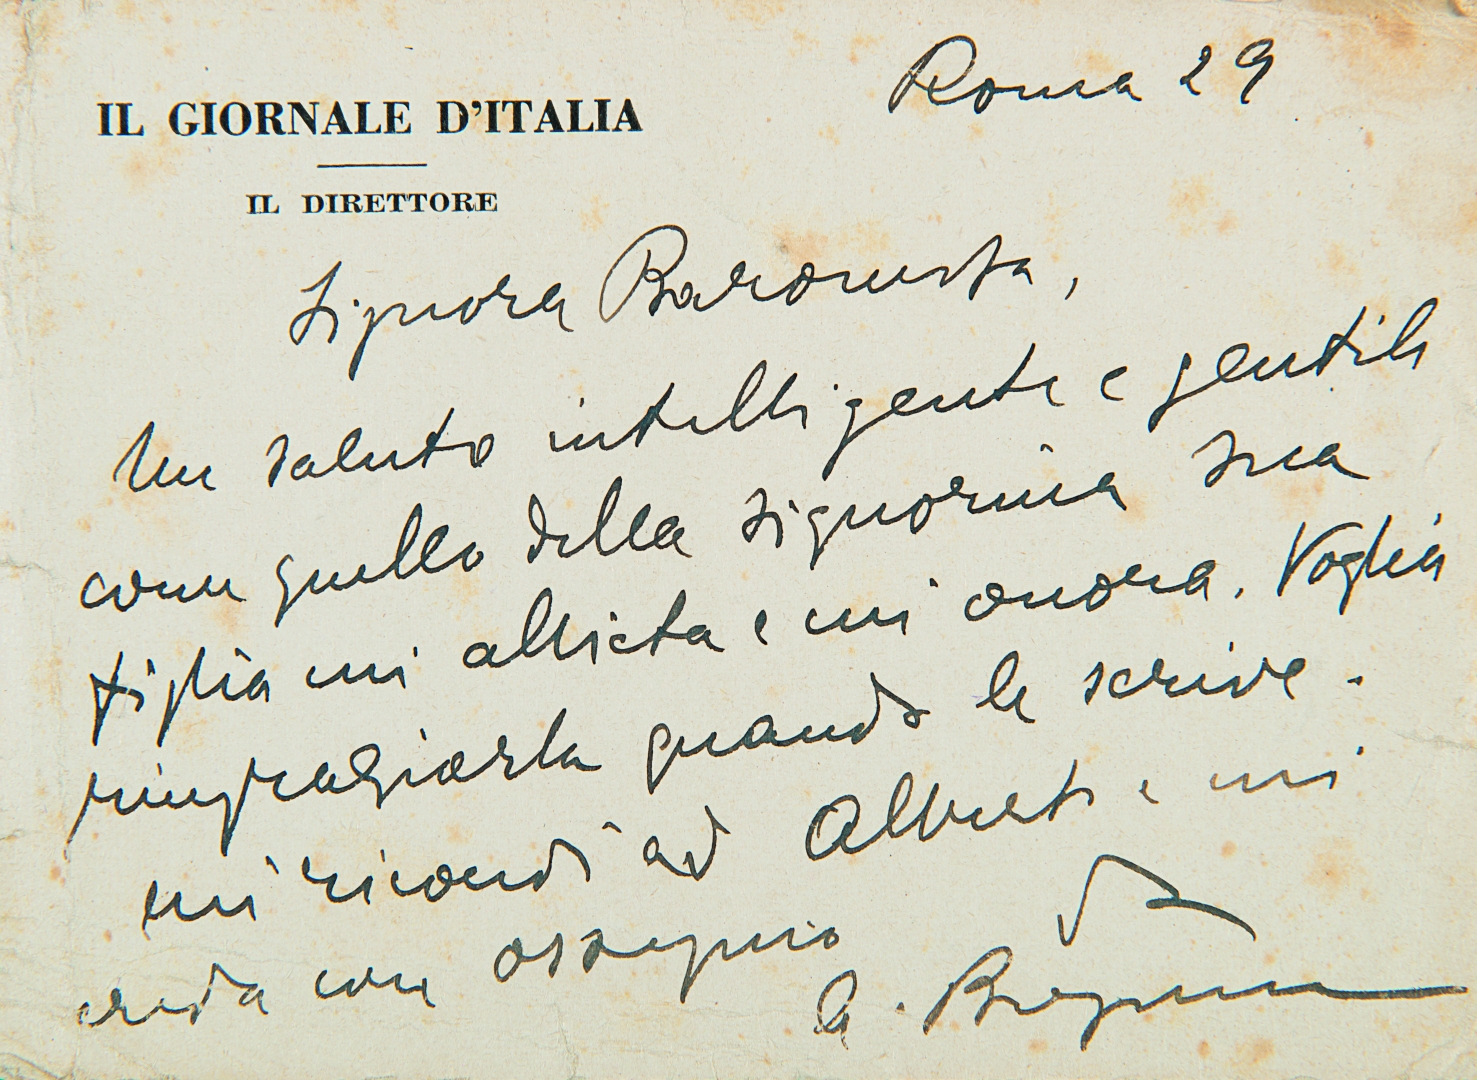 IL GIORNALE D'ITALIA
IL DIRETTORE
Roma 29
Signora Baronessa,
Un saluto intelligente e gentile
come quello della signorina sua
figlia mi allieta e mi onora. Voglia
ringraziarla quando le scrive.
mi ricordi ad Alberto e mi
creda con ossequio